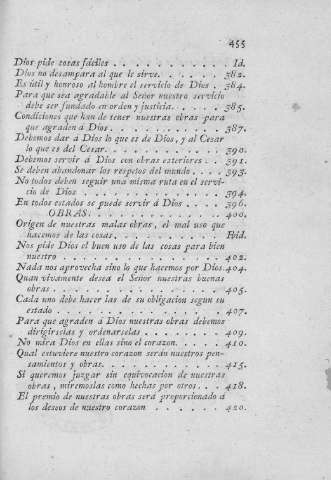 455
Dios pide cosas fáciles . . . . . . . . . . . Id.
Dios no desampara al que le sirve. . . . . . . 382.
Es util y honroso al hombre el servicio de Dios . 384.
Para que sea agradable al Señor nuestro servicio
debe ser fundado en orden y justicia. . . . . 385.
Condiciones que han de tener nuestras obras para
que agraden á Dios . . . . . . . . . . . . 387.
Debemos dar á Dios lo que es de Dios, y al Cesar
lo que es del Cesar. . . . . . . . . . . . 390.
Debemos servir á Dios con obras exteriores . . 391.
Se deben abandonar los respetos del mundo . . . 393.
No todos deben seguir una misma ruta en el servi-
cio de Dios . . . . . . . . . . . . . . . 394.
En todos estados se puede servir á Dios . . . . 396.
OBRAS. . . . . . . . . . . . . . 400.
Origen de nuestras malas obras, el mal uso que
hacemos de las cosas. . . . . . . . . . . Ibid.
Nos pide Dios el buen uso de las cosas para bien
nuestro . . . . . . . . . . . . . . . . . 402.
Nada nos aprovecha sino lo que hacemos por Dios. 404.
Quan vivamente desea el Señor nuestras buenas
obras . . . . . . . . . . . . . . . . . . 405.
Cada uno debe hacer las de su obligacion segun su
estado . . . . . . . . . . . . . . . . . 407.
Para que agraden á Dios nuestras obras debemos
dirigirselas y ordenarselas . . . . . . . . 409.
No mira Dios en ellas sino el corazon. . . . . 410.
Qual estuviere nuestro corazon serán nuestros pen-
samientos y obras. . . . . . . . . . . . . 415.
Si queremos juzgar sin equivocacion de nuestras
obras, miremoslas como hechas por otros . . . 418.
El premio de nuestras obras será proporcionado á
los deseos de nuestro corazon . . . . . . . 420.